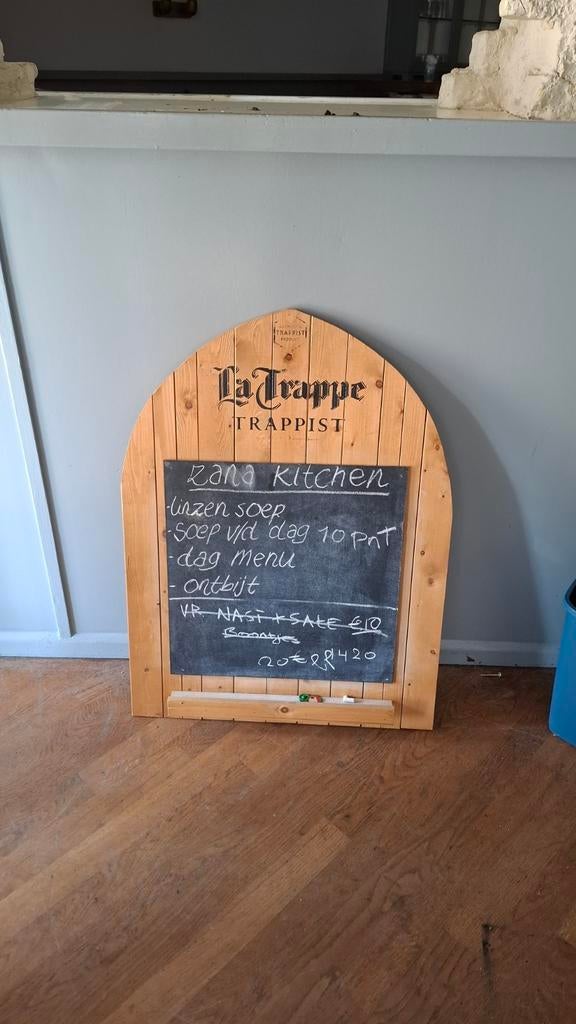 TRAPPIST
La Trappe
TRAPPIST
zana Kitchen
-linzen soep
-soep v/d dag 10 pnt
-dag menu
- ontbijt
VR NASI + SATE €10
Boontjes